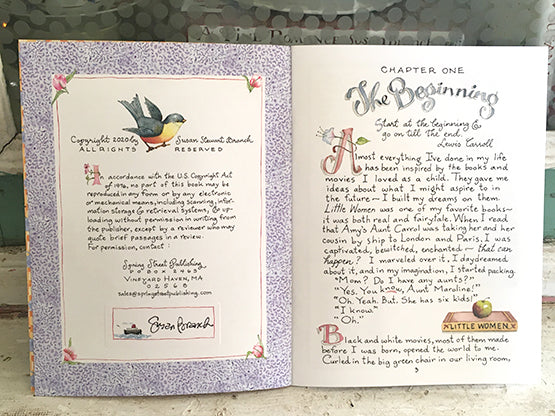 Copyright 2020 by Susan Stewart Branch
ALL RIGHTS RESERVED
In accordance with the U.S. Copyright Act
of 1976, no part of this book may be
reproduced in any form or by any electronic
or mechanical means, including scanning, infor-
mation storage & retrieval systems, & up-
loading without permission in writing from
the publisher, except by a reviewer who may
quote brief passages in a review.
For permission, contact:
Spring Street Publishing
P O BOX 2463
VINEYARD HAVEN, MA
02568
sales@springstreetpublishing.com
Susan Branch
CHAPTER ONE
The Beginning
Start at the beginning &
go on till the end.
Lewis Carroll
Almost everything I've done in my life
has been inspired by the books and
movies I loved as a child. They gave me
ideas about what I might aspire to in
the future — I built my dreams on them.
Little Women was one of my favorite books—
it was both real and fairytale. When I read
that Amy's Aunt Carrol was taking her and her
cousin by ship to London and Paris, I was
captivated, bewitched, enchanted — that can
happen? I marveled over it, I daydreamed
about it, and in my imagination, I started packing.
"Mom? Do I have any aunts?"
"Yes. You know, Aunt Maroline!"
"Oh. Yeah. But. She has six kids!"
"I know."
"Oh."
LITTLE WOMEN
Black and white movies, most of them made
before I was born, opened the world to me.
Curled in the big green chair in our living room,